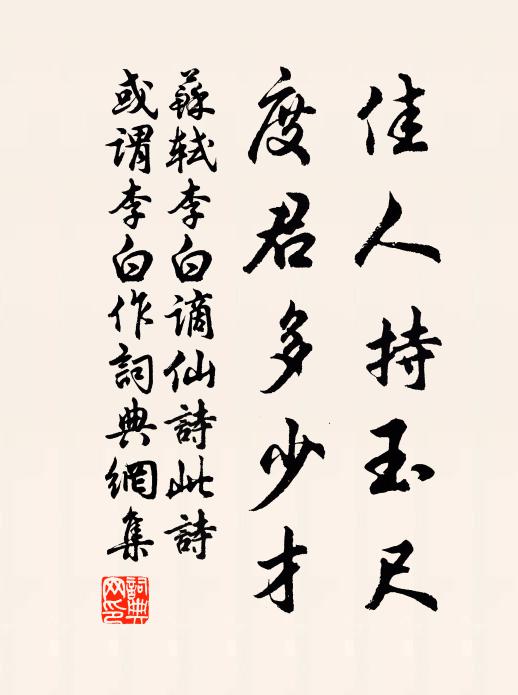 佳人持玉尺
度君多少才
蘇軾李白謫仙詩此詩
或謂李白作詞典網集
詞典網印